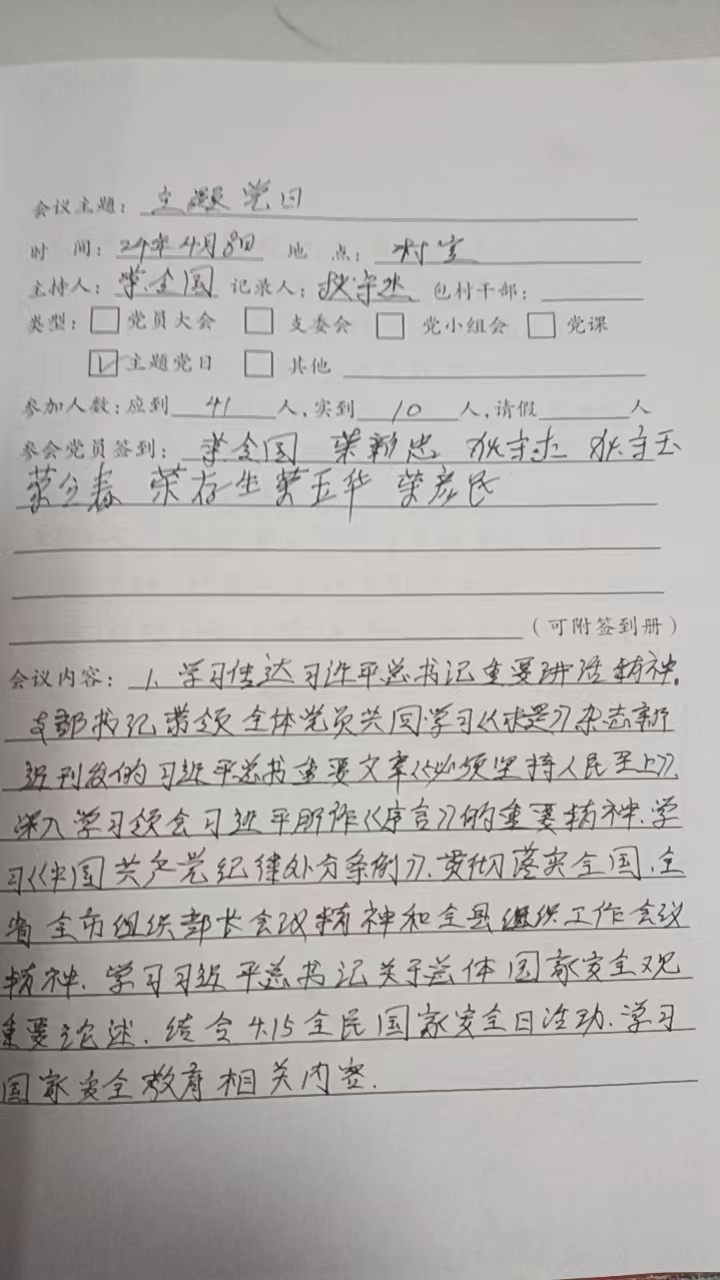 会议主题：主题党日
时 间：24年4月8日 地 点：村室
主持人：荣全国 记录人：狄守杰 包村干部：
类型：□党员大会 □支委会 □党小组会 □党课
☑主题党日 □其他
参加人数：应到41人，实到10人，请假 人
参会党员签到：荣全国 荣新忠 狄守杰 狄守玉
荣存生 荣玉华 荣彦民
（可附签到册）
会议内容：1、学习传达习近平总书记重要讲话精神。
支部书记带领全体党员共同学习《求是》杂志新
近刊发的习近平总书重要文章《必须坚持人民至上》，
深入学习领会习近平所作《序言》的重要精神.学
习《中国共产党纪律处分条例》.贯彻落实全国.全
省全市组织部长会议精神和全县组织工作会议
精神.学习习近平总书记关于总体国家安全观
重要论述.结合4.15全民国家安全日活动.学习
国家安全教育相关内容.